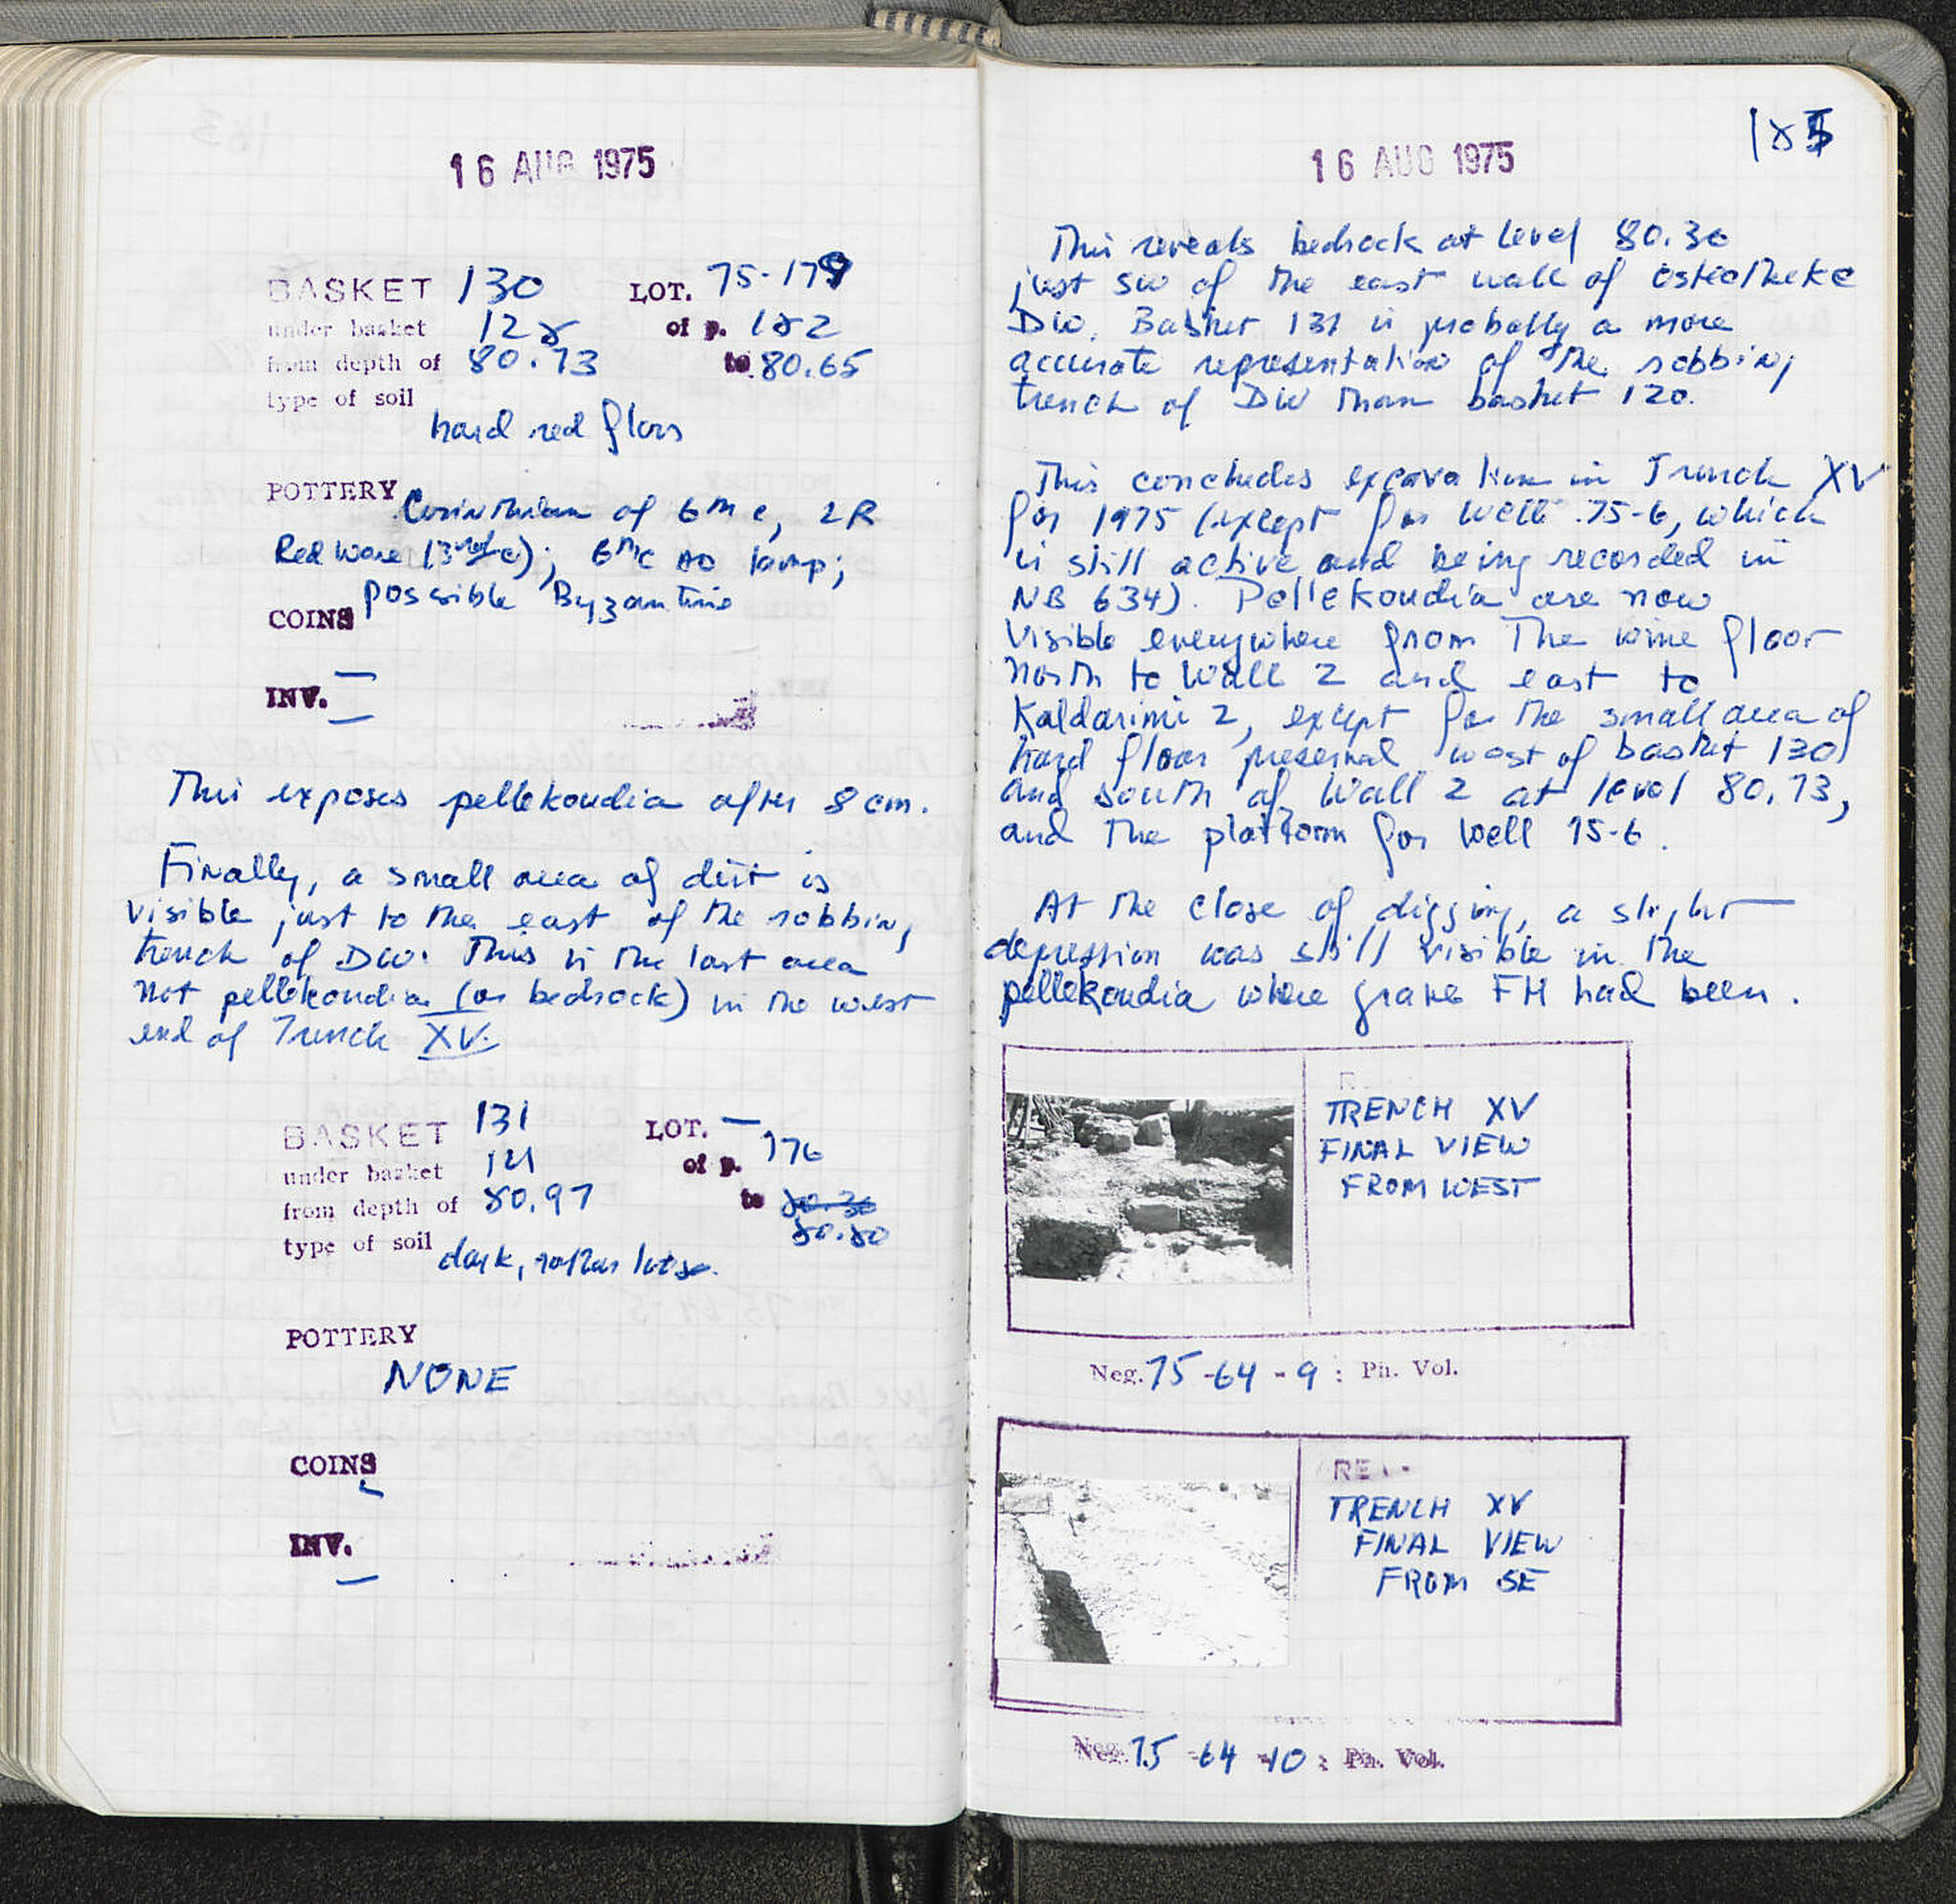 16 AUG 1975
BASKET 130 LOT. 75-179
under basket 128 of p. 182
from depth of 80.73 to 80.65
type of soil
hard red floor
POTTERY
Corinthian of 6th c, LR
Red Ware (3rd c); 6th c AD lamp;
possible Byzantine
COINS
—
INV.
—
This exposes pellekoudia after 8 cm.
Finally, a small area of dirt is
visible just to the east of the robbing
trench of DW. This is the last area
not pellekoudia (or bedrock) in the west
end of Trench XV.
BASKET 131 LOT. —
under basket of p. 176
from depth of 80.97 to 80.30
80.80
type of soil
dark, rather loose.
POTTERY
NONE
COINS
INV.
—
16 AUG 1975
185
This reveals bedrock at level 80.30
just SW of the east wall of osteotheke
DW. Basket 131 is probably a more
accurate representation of the robbing
trench of DW than basket 120.
This concludes excavation in Trench XV
for 1975 (except for Well 75-6, which
is still active and being recorded in
NB 634). Pellekoudia are now
visible everywhere from the wine floor
north to Wall 2 and east to
Kaldarimi 2, except for the small area of
hard floor preserved west of basket 130
and south of Wall 2 at level 80.73,
and the platform for Well 75-6.
At the close of digging, a slight
depression was still visible in the
pellekoudia where grave FH had been.
TRENCH XV
FINAL VIEW
FROM WEST
Neg. 75-64-9 : Ph. Vol.
TRENCH XV
FINAL VIEW
FROM SE
Neg. 75-64-10 : Ph. Vol.